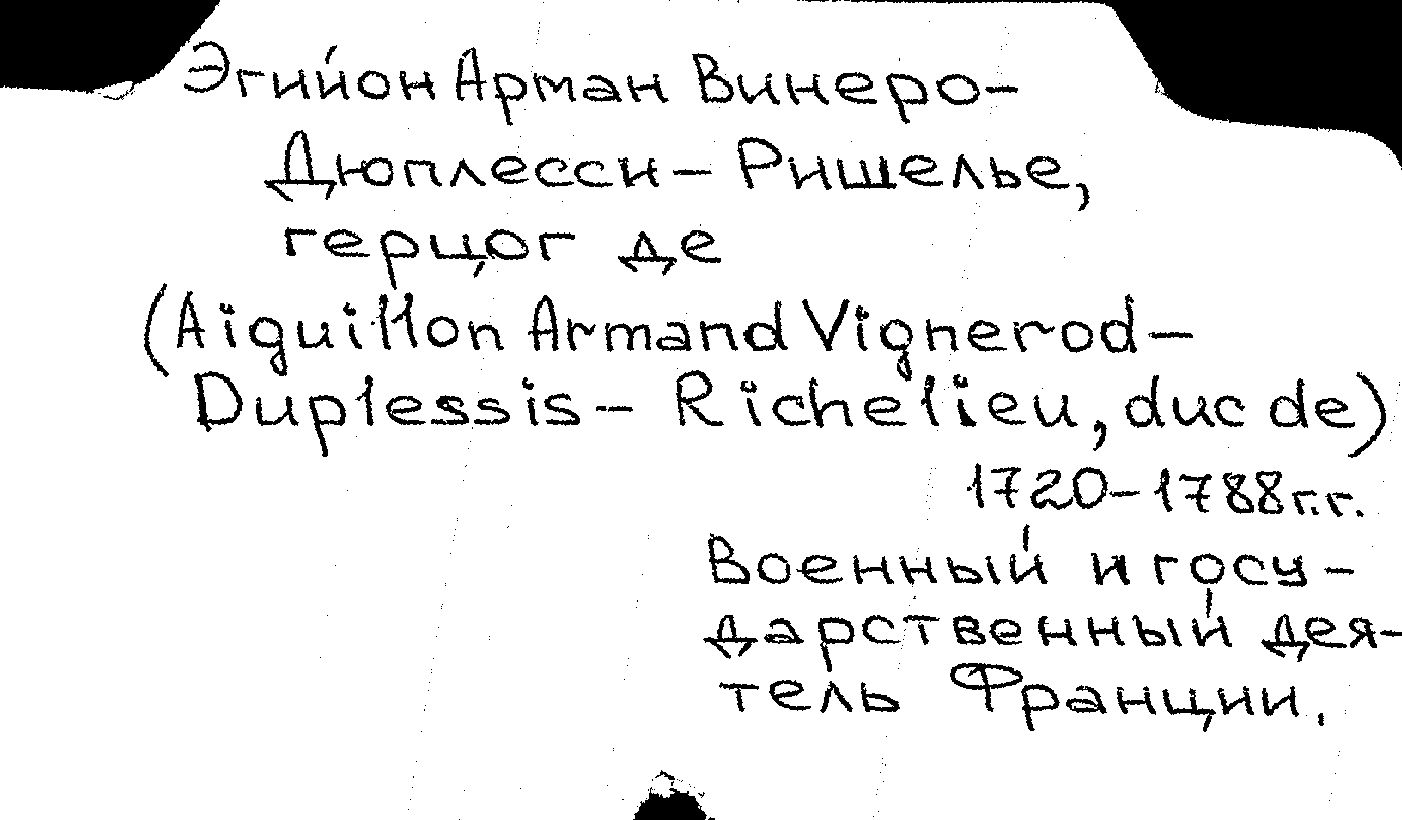 Эгийон Арман Винеро-
Дюплесси-Ришелье,
герцог де
(Aiguillon Armand Vignerod-
Duplessis-Richelieu, duc de)
1720-1788г.г.
Военный и госу-
дарственный дея-
тель Франции.